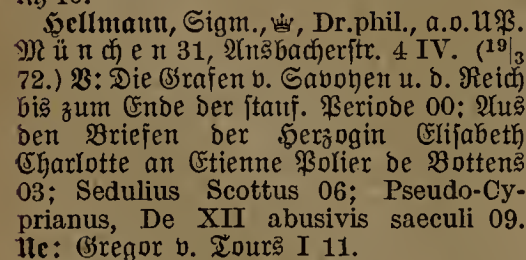 Hellmann, Sigm., ♕, Dr.phil., a.o.UP.
München 31, Ansbacherstr. 4 IV. (19|3
72.) V: Die Grafen v. Savoyen u. d. Reich
bis zum Ende der stauf. Periode 00; Aus
den Briefen der Herzogin Elisabeth
Charlotte an Etienne Polier de Bottens
03; Sedulius Scottus 06; Pseudo-Cy-
prianus, De XII abusivis saeculi 09.
Ue: Gregor v. Tours I 11.